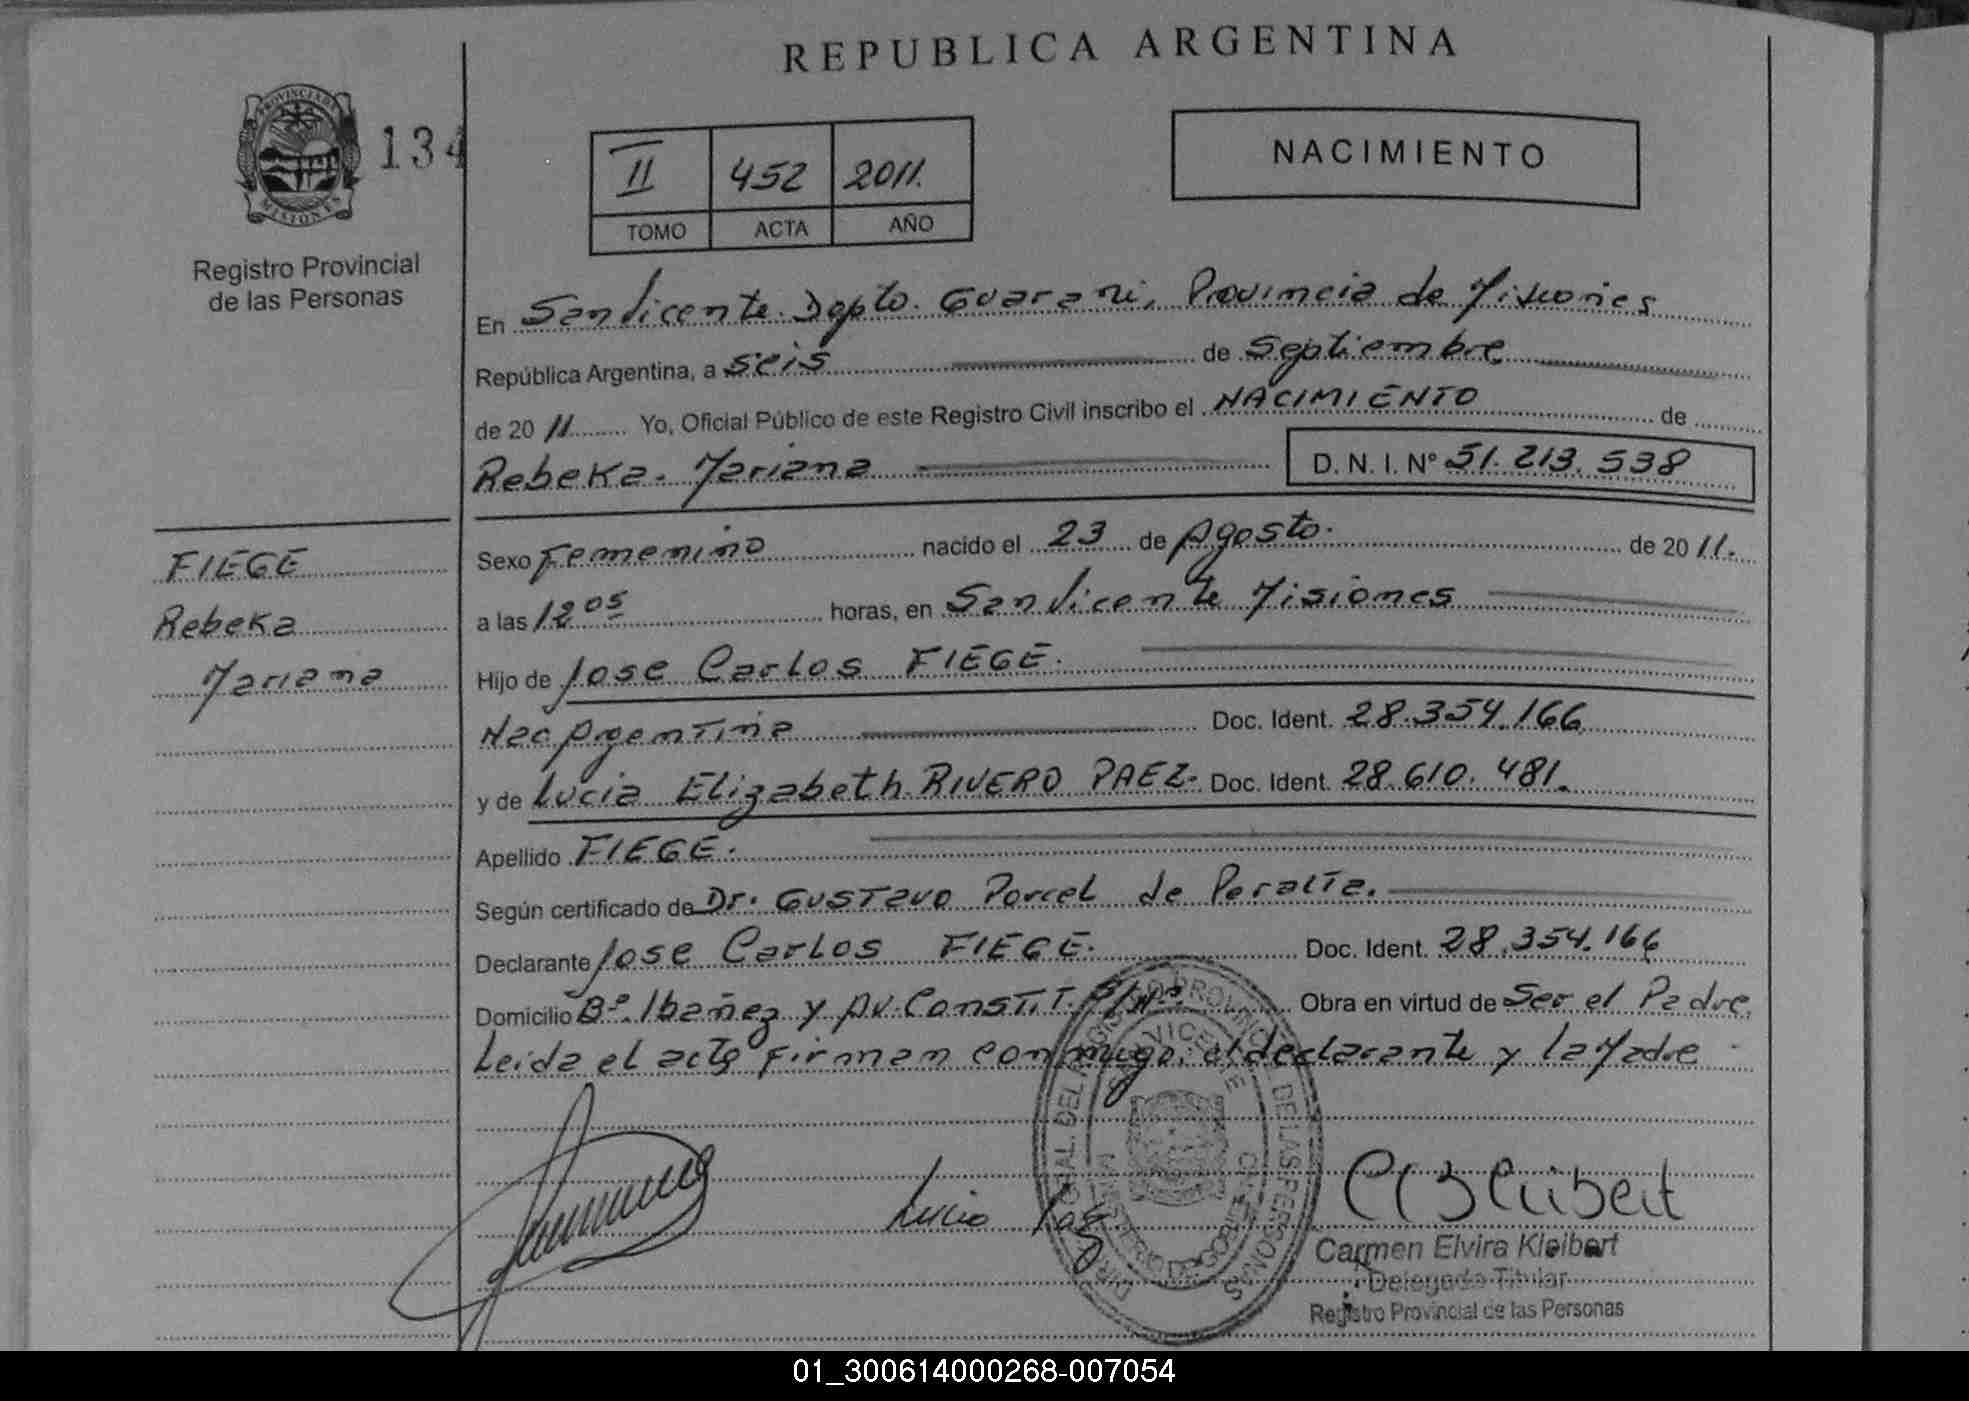 REPUBLICA ARGENTINA
PROVINCIA DE MISIONES
134
Registro Provincial
de las Personas
II 452 2011.
TOMO ACTA AÑO
NACIMIENTO
En San Vicente. Dpto. Guarani, Provincia de Misiones
República Argentina, a seis de Septiembre
de 2011 Yo, Oficial Público de este Registro Civil inscribo el NACIMIENTO de
Rebeka. Mariana D. N. I. Nº 51. 213. 538
FIEGE
Rebeka
Mariana
Sexo Femenino nacido el 23 de Agosto. de 2011.
a las 12 05 horas, en San Vicente Misiones
Hijo de Jose Carlos FIEGE.
Nac Argentina Doc. Ident. 28.354.166
y de Lucia Elizabeth RIVERO PAEZ. Doc. Ident. 28.610.481.
Apellido FIEGE.
Según certificado de Dr. Gustavo Porcel de Peralta.
Declarante Jose Carlos FIEGE. Doc. Ident. 28.354.166
Domicilio Bº. Ibañez y Av. Constit. S/Nº. Obra en virtud de Ser el Padre.
Leida el acta firman conmigo, el declarante y la Madre
Lucia
Carmen Elvira Kleibert
Delegada Titular
Registro Provincial de las Personas
01_300614000268-007054